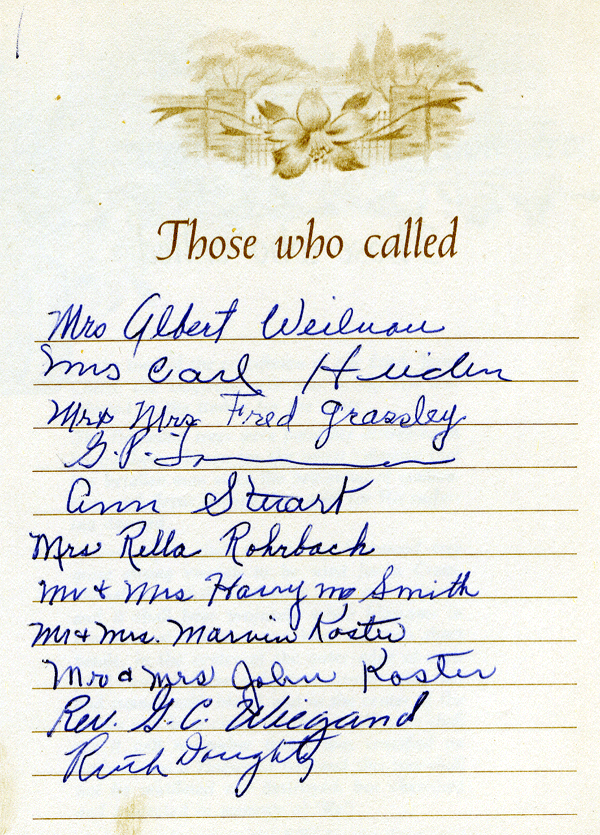 Those who called
Mrs Albert Weilnau
Mrs Carl Heiden
Mr & Mrs Fred Grassley
G.P.
Ann Stuart
Mrs Rella Rohrback
Mr & Mrs Harry Smith
Mr & Mrs. Marvin Koster
Mr & Mrs John Koster
Rev. G. C. Wiegand
Ruth Doughty